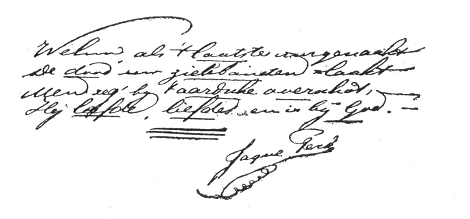 Welnu, als 't laatste uur genaakt
De dood uw zielebanden slaakt
Men zeg' bij 't aardsche overschot, —
Hij leefde, liefde.. en is bij God. —
Jaque Perk